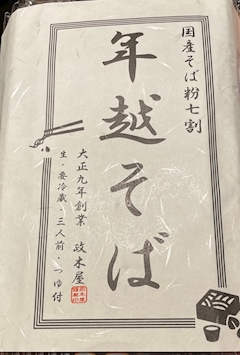 国産そば粉七割
年越そば
大正九年創業 政木屋
生・要冷蔵・三人前・つゆ付